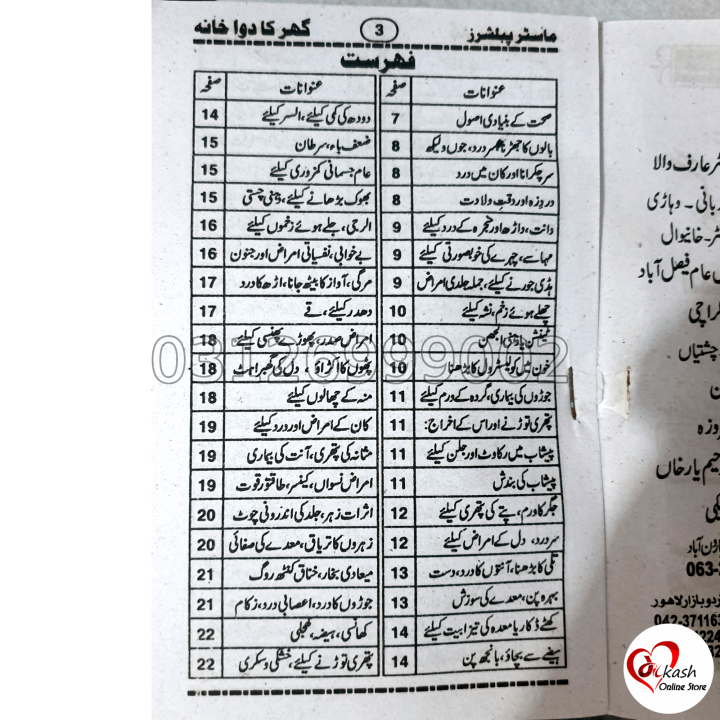 ماسٹر پبلشرز 3 گھر کا دوا خانہ
فہرست
عنوانات صفحہ
صحت کے بنیادی اصول 7
بالوں کا جھڑنا، سر درد، جوں ولیکھ 8
سر چکرانا اور کان میں درد 8
دردِ زہ اور دقتِ ولادت 8
دانت، داڑھ اور حنجرہ کے درد کیلئے 9
مہاسے، چہرے کی خوبصورتی کیلئے 9
ہڈی جوڑنے کیلئے، جملہ جلدی امراض 9
جلے ہوئے زخم، نشہ کیلئے 10
ٹینشن یا ذہنی الجھن 10
خون میں کولیسٹرول کا بڑھنا 10
جوڑوں کی بیماری، گردہ کے ورم کیلئے 11
پتھری توڑنے اور اس کے اخراج: 11
پیشاب میں رکاوٹ اور جلن کیلئے 11
پیشاب کی بندش 11
جگر کا ورم، پتے کی پتھری کیلئے 12
سر درد، دل کے امراض کیلئے 12
تلی کا بڑھنا، آنتوں کا درد، دست 13
بہرہ پن، معدے کی سوزش 13
کھٹے ڈکار یا معدہ کی تیزابیت کیلئے 14
ہیضے سے بچاؤ، بانجھ پن 14
عنوانات صفحہ
دودھ کی کمی کیلئے، السر کیلئے 14
ضعف باہ، سرطان 15
عام جسمانی کمزوری کیلئے 15
بھوک بڑھانے کیلئے، ذہنی چستی 15
الرجی، جلے ہوئے زخموں کیلئے 16
بے خوابی، نفسیاتی امراض اور جنون 16
مرگی، آواز کا بیٹھ جانا، اڑھ کا درد 17
دھدر کیلئے، قے 17
امراض صدر، پھوڑے پھنسی کیلئے 18
پٹھوں کا اکڑاؤ، دل کی گھبراہٹ 18
منہ کے چھالوں کیلئے 18
کان کے امراض اور درد کیلئے 19
مثانہ کی پتھری، آنت کی بیماری 19
امراض نسواں، کینسر، طاقتور قوت 19
اثرات زہر، جلد کی اندرونی چوٹ 20
زہروں کا تریاق، معدے کی صفائی 20
میعادی بخار، خناق کنٹھ روگ 21
جوڑوں کا درد، اعصابی درد، زکام 21
کھانسی، ہیضہ، کھجلی 22
پتھری توڑنے کیلئے، خشکی و سکری 22
03126999002
ٹر عارف والا
ربانی۔ وہاڑی
ٹر۔ خانیوال
عام فیصل آباد
کراچی
چشتیاں
ن
وزہ
حیم یار خاں
کی
063-
ردو بازار لاہور
042-37116
Dilkash
Online Store